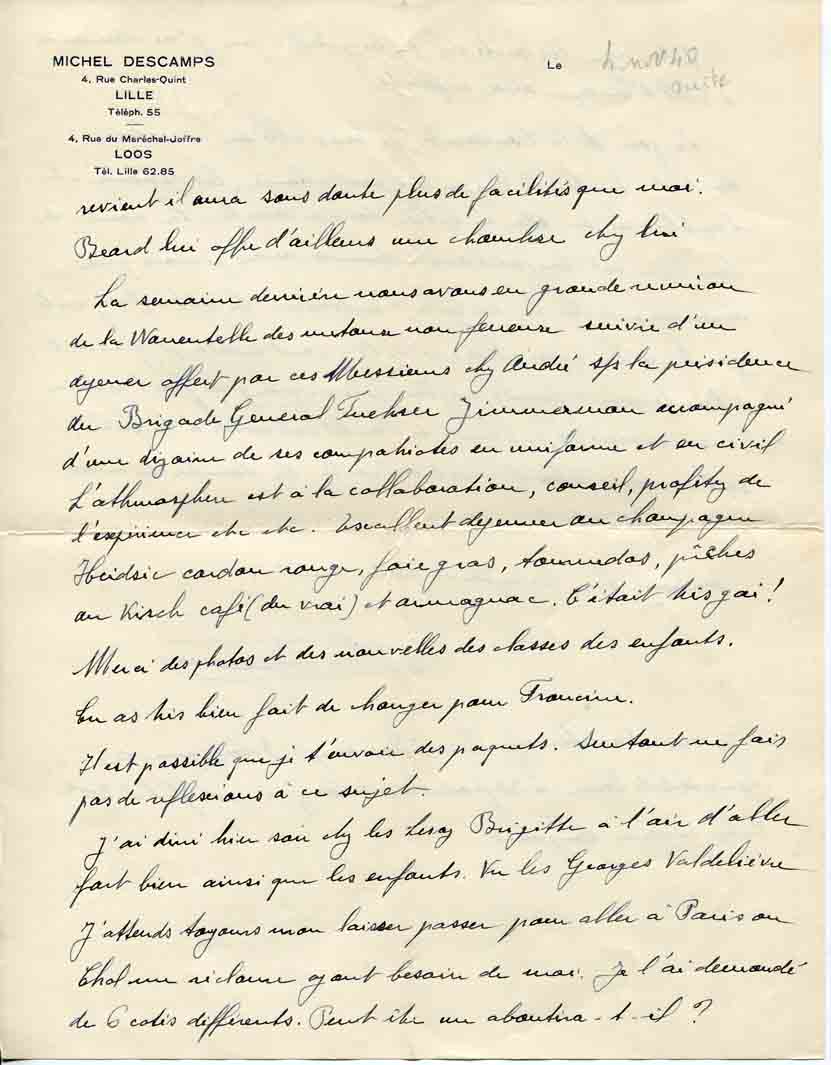 MICHEL DESCAMPS
4, Rue Charles-Quint
LILLE
Téléph. 55
4, Rue du Maréchal-Joffre
LOOS
Tél. Lille 62.85
Le 4 nov 40
suite
revient il aura sans doute plus de facilités que moi.
Beard lui offre d'ailleurs une chambre chez lui
La semaine dernière nous avons eu grande reunion
de la Warentelle des metaux non ferreux suivie d'un
dejeuner offert par ces Messieurs chez André s/s la présidence
du Brigade General Zimmerman accompagné
d'une dizaine de ses compatriotes en uniforme et en civil
L'athmosphere est à la collaboration, conseil, profitez de
l'expérience etc etc. Excellent dejeuner au champagne
Heidsic cordon rouge, foie gras, tournedos, pêches
au Kirsch café (du vrai) et armagnac. C'était très gai!
Merci des photos et des nouvelles des classes des enfants.
Tu as très bien fait de changer pour Francine.
Il est possible que je t'envoie des paquets. Surtout ne fais
pas de reflexions à ce sujet.
J'ai diné hier soir chez les Leroy Brigitte à l'air d'aller
fort bien ainsi que les enfants. Vu les Georges Valdelièvre
J'attends toujours mon laisser passer pour aller à Paris ou
Chol me réclame ayant besoin de moi. Je l'ai demandé
de 6 cotés différents. Peut être un aboutira-t-il?